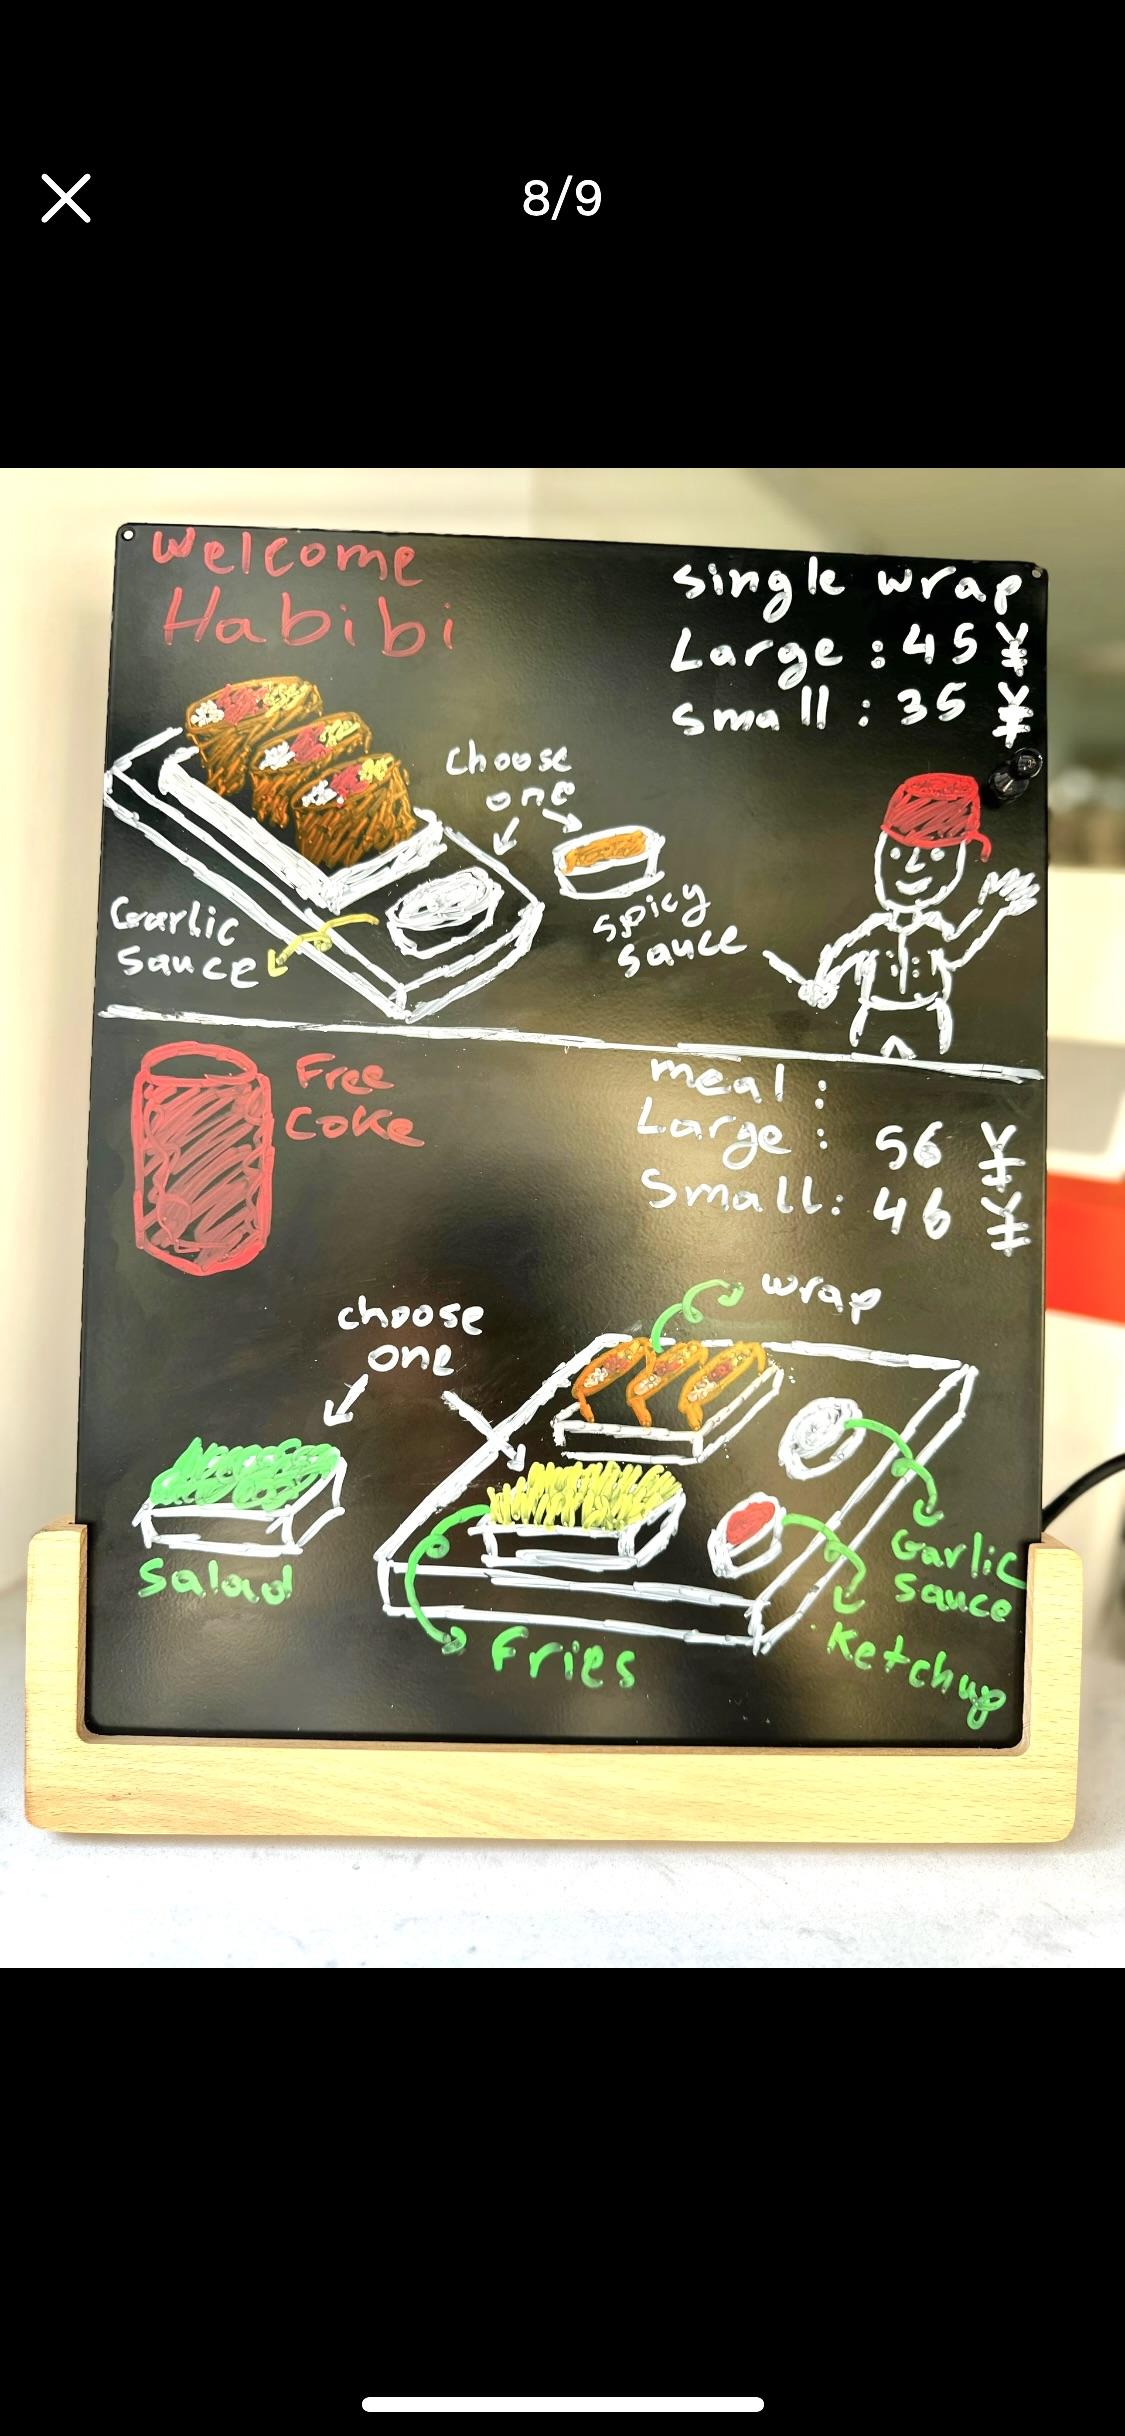 8/9
Welcome
Habibi
single wrap
Large : 45 ¥
Small : 35 ¥
choose
one
Garlic
sauce
spicy
sauce
Free
Coke
meal :
Large : 56 ¥
Small: 46 ¥
wrap
choose
one
Salad
Fries
Garlic
sauce
Ketchup